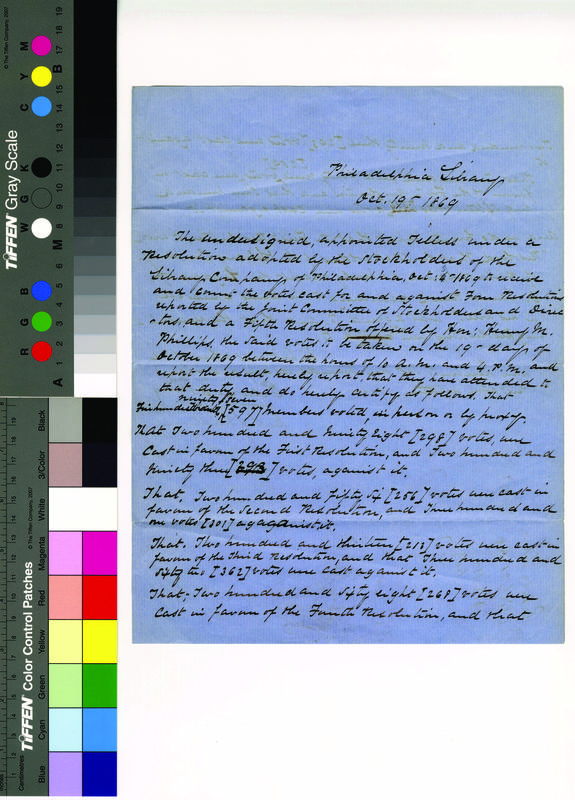 Philadelphia Library
Oct. 19th 1869
The undesigned, appointed Tellers under a
Resolution adopted by the Stockholders of the
Library Company of Philadelphia, Oct: 4th 1869 to receive
and Count the votes cast for and against Four Resolutions
reported by the Joint Committee of Stockholders and Direc
-tors, and a Fifth Resolution offered by Hon: Henry M.
Phillips, the said votes to be taken on the 19th day of
October 1869 between the hours of 10 A.M. and 4. P.M. and
report the result, hereby report, that they have attended to
that duty, and do hereby certify as follows. That
ninety seven
Five hundred and [597] Members voted, in person or by proxy.
That Two hundred and Ninety Eight [298] votes, were
Cast in favour of the First Resolution, and Two hundred and
Ninety three [293] votes, against it.
That, Two hundred and fifty six [256] votes were cast in
favour of the Second Resolution, and Three hundred and
one votes [301] against it.
That. Two hundred and thirteen [213] votes were cast in
favour of the Third Resolution, and that Three hundred and
sixty two [362] votes were cast against it.
That, Two hundred and sixty eight [268] votes were
Cast in favour of the Fourth Resolution, and that
TIFFEN Gray Scale
© The Tiffen Company, 2007
R G B W G K C Y M
A 1 2 3 4 5 6 M 8 9 10 11 12 13 14 15 B 17 18 19
TIFFEN Color Control Patches
© The Tiffen Company, 2007
Centimetres
Blue Cyan Green Yellow Red Magenta White 3/Color Black